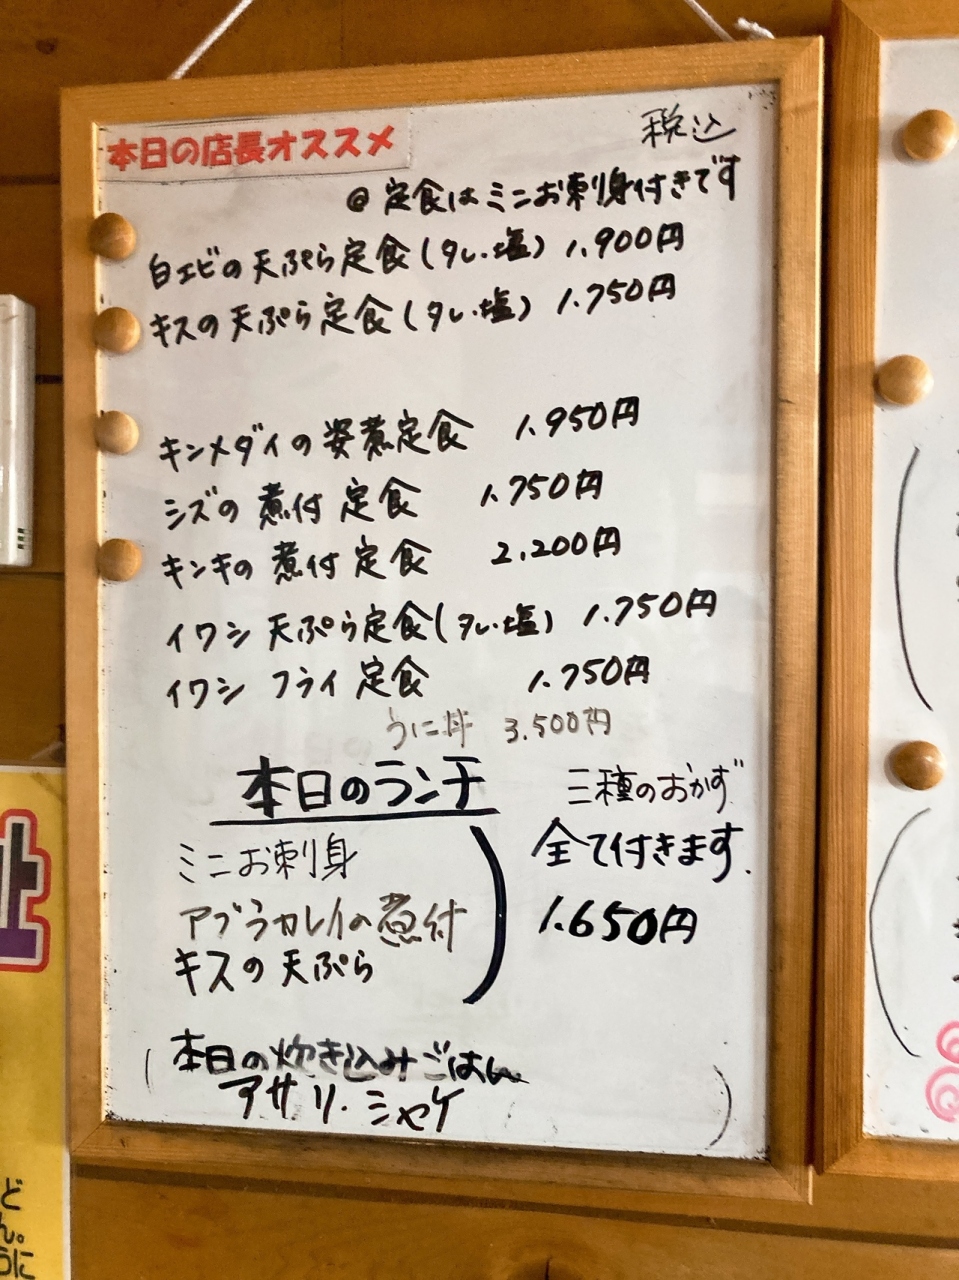 本日の店長オススメ
税込
@ 定食はミニお刺身付きです
白エビの天ぷら定食(タレ・塩) 1.900円
キスの天ぷら定食(タレ・塩) 1.750円
キンメダイの姿煮定食 1.950円
シズの煮付定食 1.750円
キンキの煮付定食 2.200円
イワシ天ぷら定食(タレ・塩) 1.750円
イワシフライ定食 1.750円
うに丼 3.500円
本日のランチ
ミニお刺身
アブラカレイの煮付
キスの天ぷら
三種のおかず
全て付きます.
1.650円
本日の炊き込みごはん
アサリ・シャケ
ど
ん。
うに